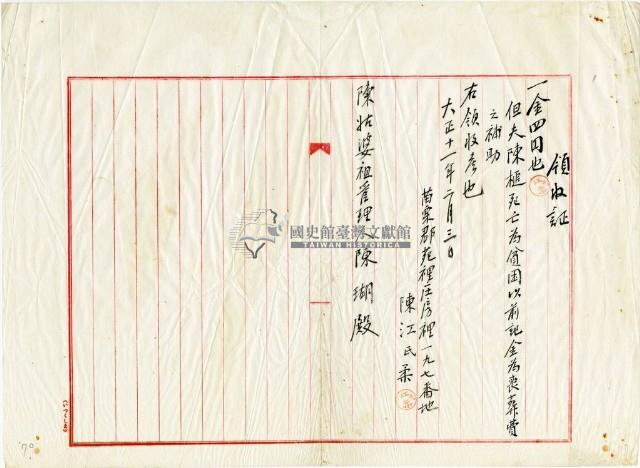 領收証
一金四円也
但夫陳樞死亡為貧困以前記金為喪葬費
之補助
右領收候也
大正十一年二月三日
苗栗郡苑裡庄房裡一九七番地
陳江氏柔
陳姑婆祖管理人陳瑚殿
國史館臺灣文獻館
TAIWAN HISTORICA
70